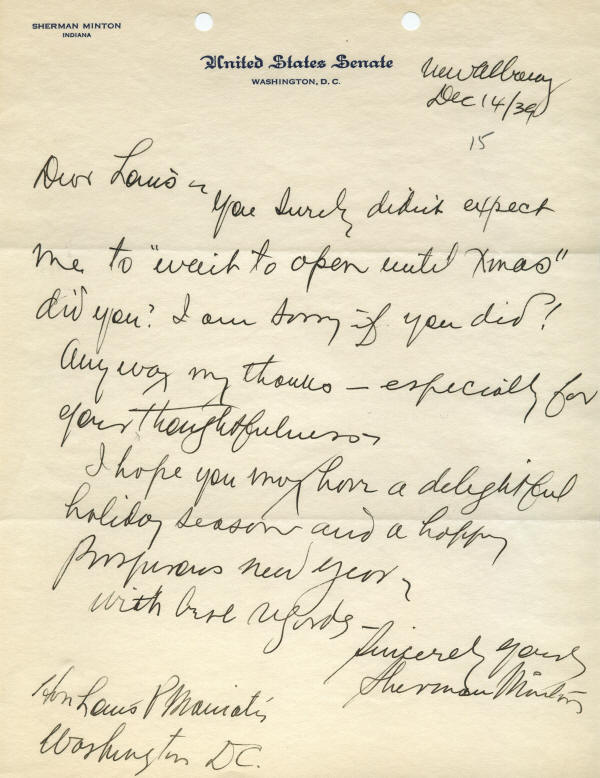 SHERMAN MINTON
INDIANA
United States Senate
WASHINGTON, D. C.
New Albany
Dec 14/39
15
Dear Louis –
You surely didn't expect
me to "wait to open until Xmas"
did you? I am sorry if you did!
Anyway my thanks – especially for
your thoughtfulness
I hope you may have a delightful
holiday season and a happy
Prosperous new year,
With best regards –
Sincerely yours
Sherman Minton
Hon Louis P
Washington DC.